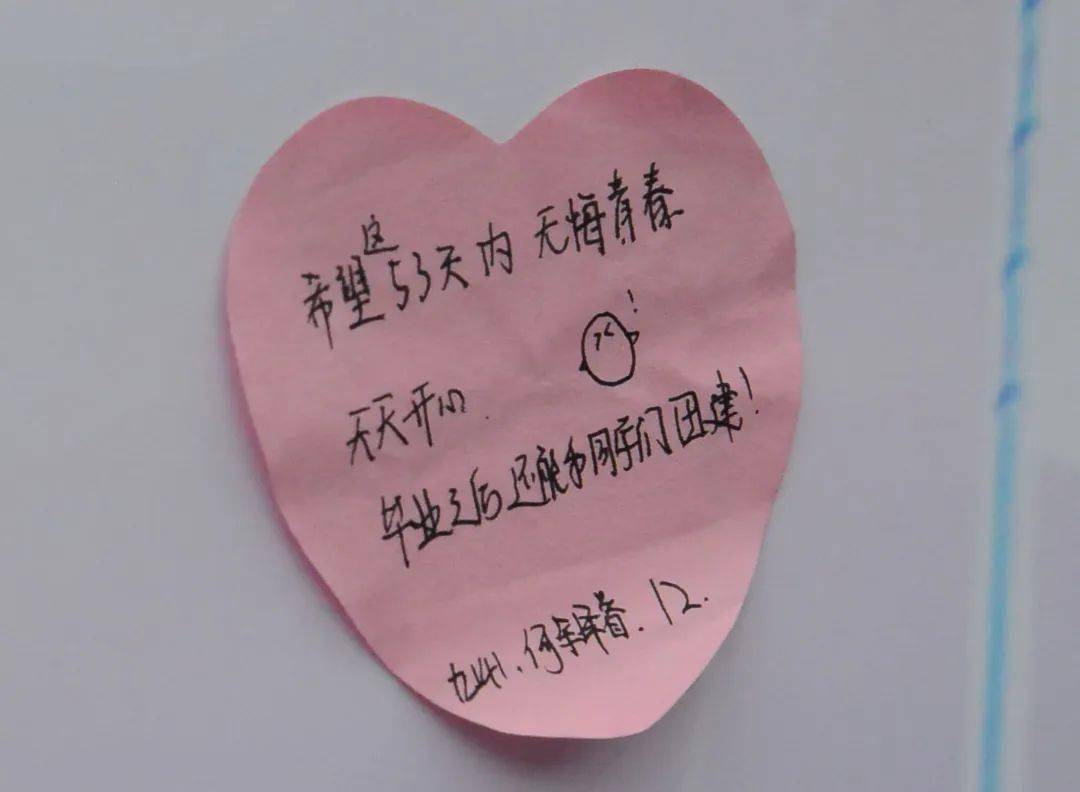 希望这53天内 无悔青春
天天开心.
毕业之后还能和同学们团建!
何 12.